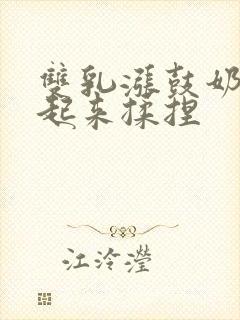 雙乳漲鼓奶
起来揉捏
江泠瀅